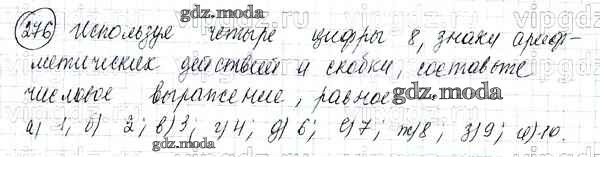 gdz.moda
276 Используя четыре цифры 8, знаки ариф-
метических действий и скобки, составьте
числовое выражение, равное
gdz.moda
а) 1; б) 2; в) 3; г) 4; д) 6; е) 7; ж) 8; з) 9; и) 10.
gdz.moda